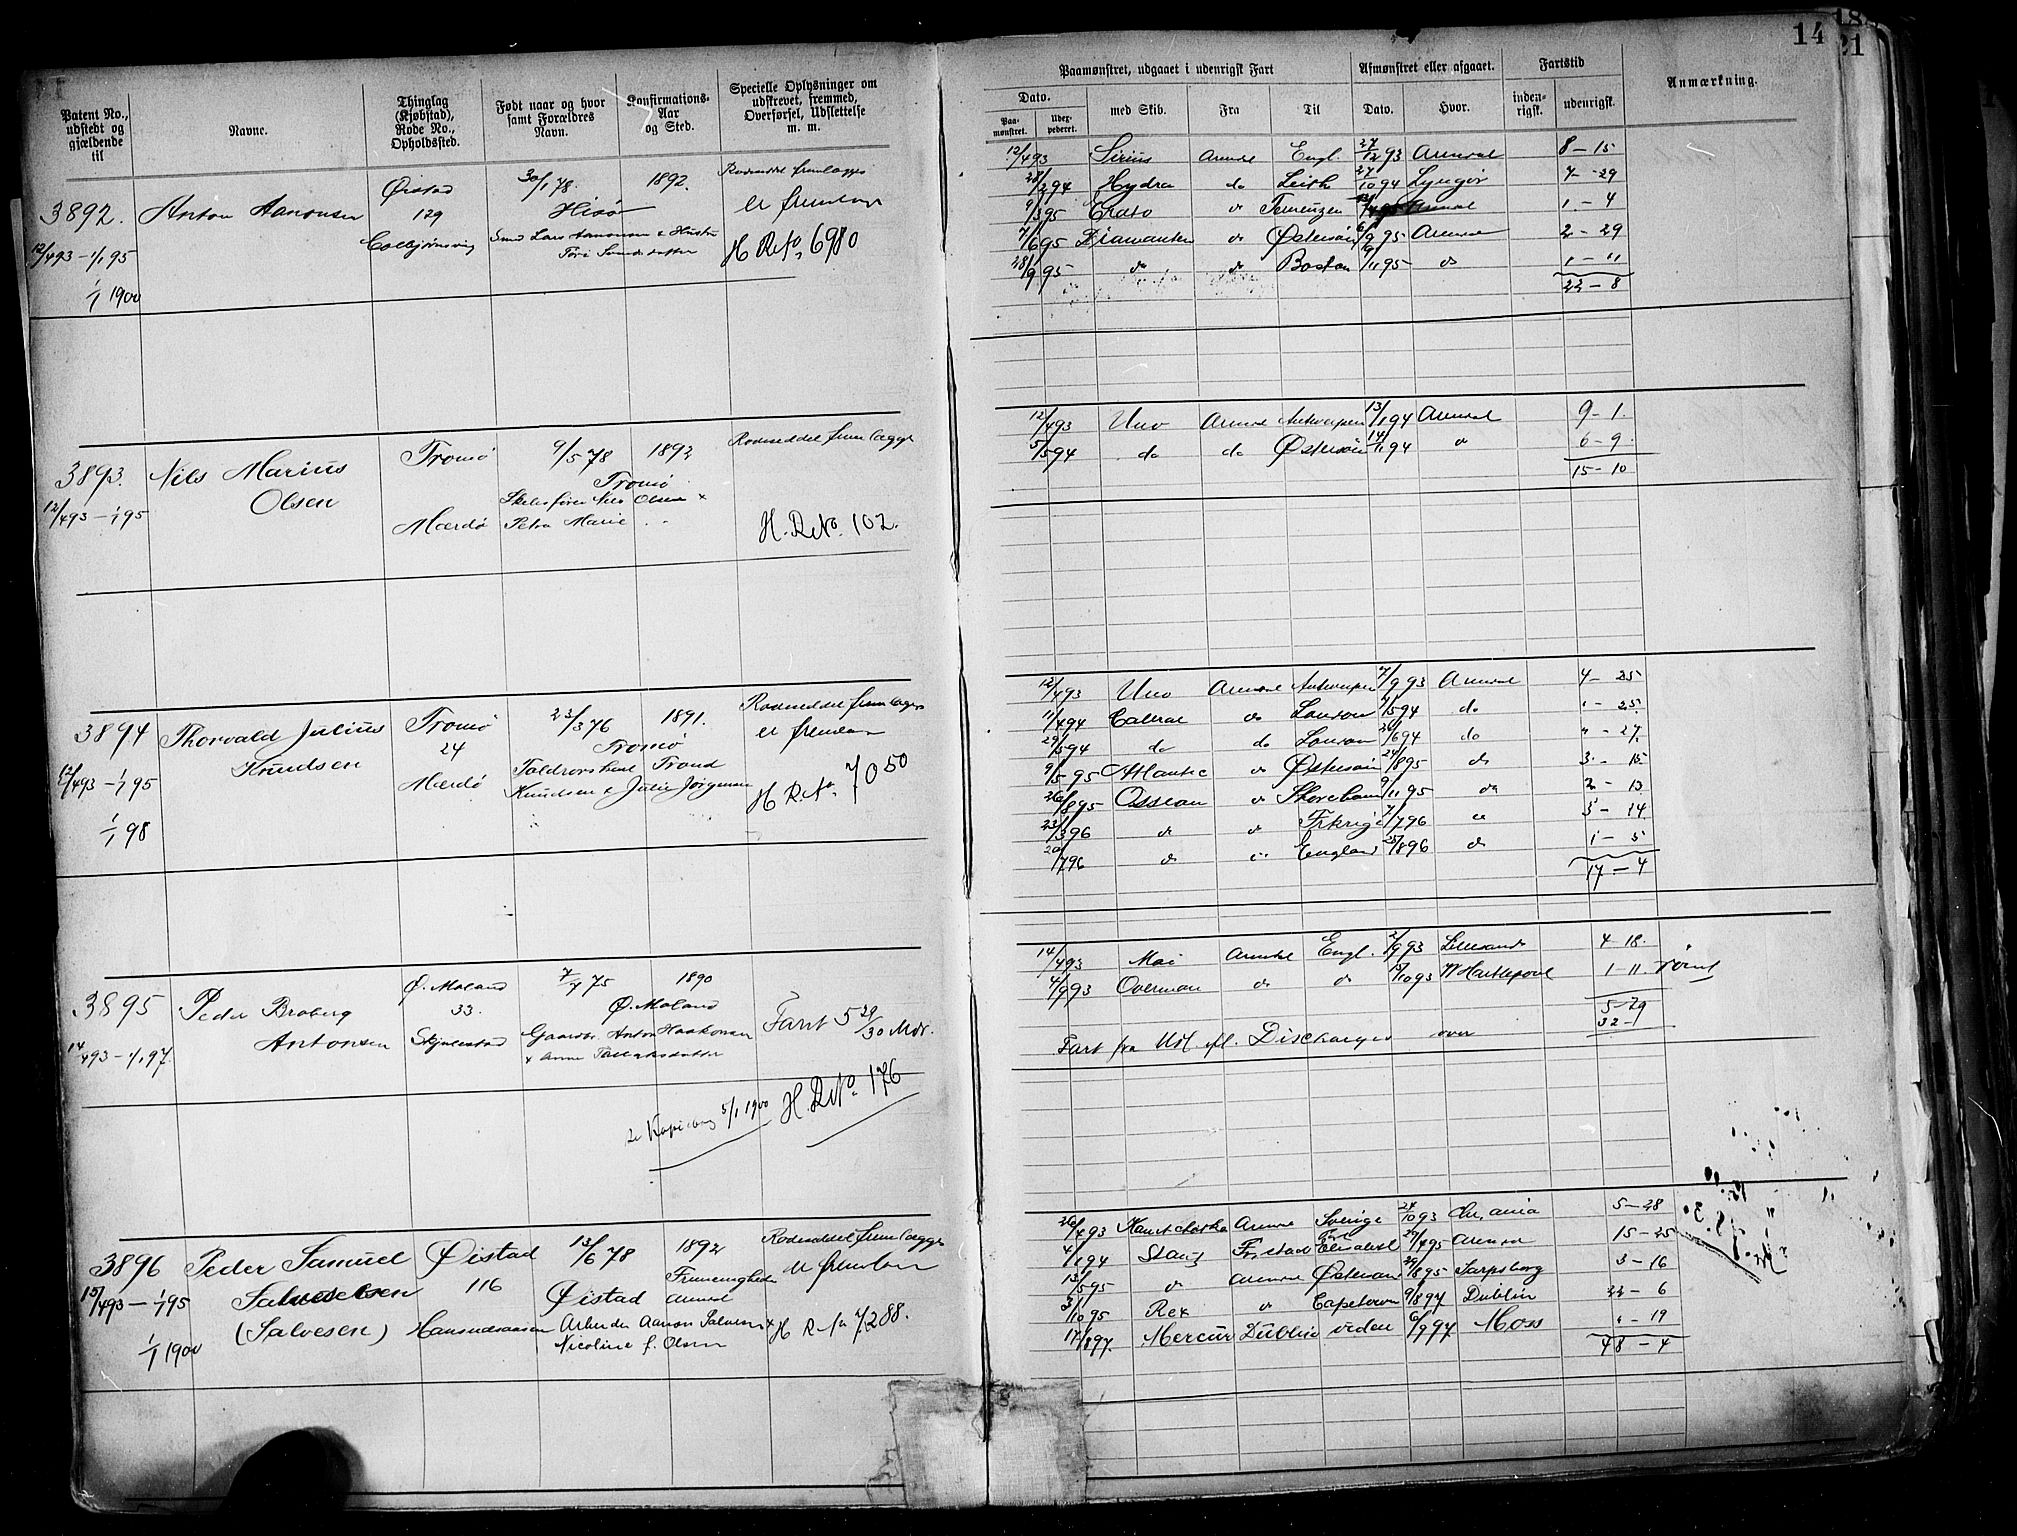 14
21
Patent No., udstedt og gjældende til
Navne.
Thinglag (Kjøbstad), Rode No., Opholdssted.
Født naar og hvor samt Forældres Navn.
Konfirmations-Aar og Sted.
Specielle Oplysninger om udskrevet, fremmed, Overførsel, Udslettelse m. m.
Paamønstret, udgaaet i udenrigsk Fart
Afmønstret eller afgaaet.
Fartstid
Anmærkning.
Dato.
med Skib.
Fra
Til
Dato.
Hvor.
inden-rigsk.
udenrigsk.
Paa-mønstret.
Udex-pederet.
3892.
Anton Aanonsen
Øistad
129
30/1 78.
Hisø
1892.
12/4 93 – 1/1 95
1/1 1900
H R No 6980
12/4 93 Sirius Arendal Engl. 27/12 93 Arendal 8 – 15
28/2 94 Hydra do Leith 27/10 94 Lyngør 7 – 29
9/3 95 Erato do 1 – 4
7/6 95 Diamanten do Østersøen 95 Arendal 2 – 29
28/9 95 do do Boston 9/11 95 do 1 – 11
22 – 8
3893.
Nils Marius
Olsen
12/4 93 – 1/1 95
Tromø
Mærdø
9/5 78
Tromø
1892
Nils Olsen +
Petra Marie
H. R No. 102.
12/4 93 Uno Arendal Antwerpen 13/1 94 Arendal 9 – 1.
5/5 94 do do Østersøen 14/11 94 do 6 – 9.
15 – 10
3894
Thorvald Julius
Knudsen
12/4 93 – 1/1 95
1/1 98
Tromø
24
Mærdø
23/3 76
Tromø
1891.
Toldrorskarl Trond
Knudsen & Julie Jørgensen
H R. No. 7050
12/4 93 Uno Arendal Antwerpen 7/9 93 Arendal 4 – 25
11/4 94 do London 7/5 94 do " – 25.
29/5 94 do do London 26/6 94 do " – 27.
9/5 95 Atlantic do Østersøen 24/8 95 do 3 – 15
26/8 95 Ossian do Shoreham 9/11 95 do 2 – 13
23/3 96 do do 7/7 96 do 3 – 14
20/7 96 do do England 25/8 96 do 1 – 5
17 – 4
3895
Peder Broberg
Antonsen
14/4 93 – 1/1 97.
Ø. Moland
33.
7/7 75
Ø. Moland
1890
Gaardbr. Anton Haakonsen
Fart 5 29/30 Mdr.
5/1 1900 H. R No 176
14/4 93 Mai Arendal Engl. 2/9 93 Lillesand 4 – 18.
4/9 93 Overman do do 10 93 W Hartlepool 1 – 11. rømt
5 – 29
32 – 1
Fart fra Udl. efl. Discharges over
3896
Peder Samuel
Salvesen
(Salvesen)
15/4 93 – 1/1 95
1/1 1900
Øistad
116
13/6 78
Øistad
1892
Frimenigheden
Arendal
Arbeider Aanon Salvesen +
Nicoline f. Olsen
H R No 7288.
26/4 93 Arendal Sverige 24/10 93 Chr.ania 5 – 28
4/1 94 Stanley Fr.stad 29/4 95 Arendal 15 – 25
13/5 95 do Arendal Østersøen 29/8 95 Sarpsborg 3 – 16
3/10 95 Rex do Capetown 9/8 97 Dublin 22 – 6
17/8 97 Mercur Dublin viden 6/9 97 Moss " – 19
48 – 4